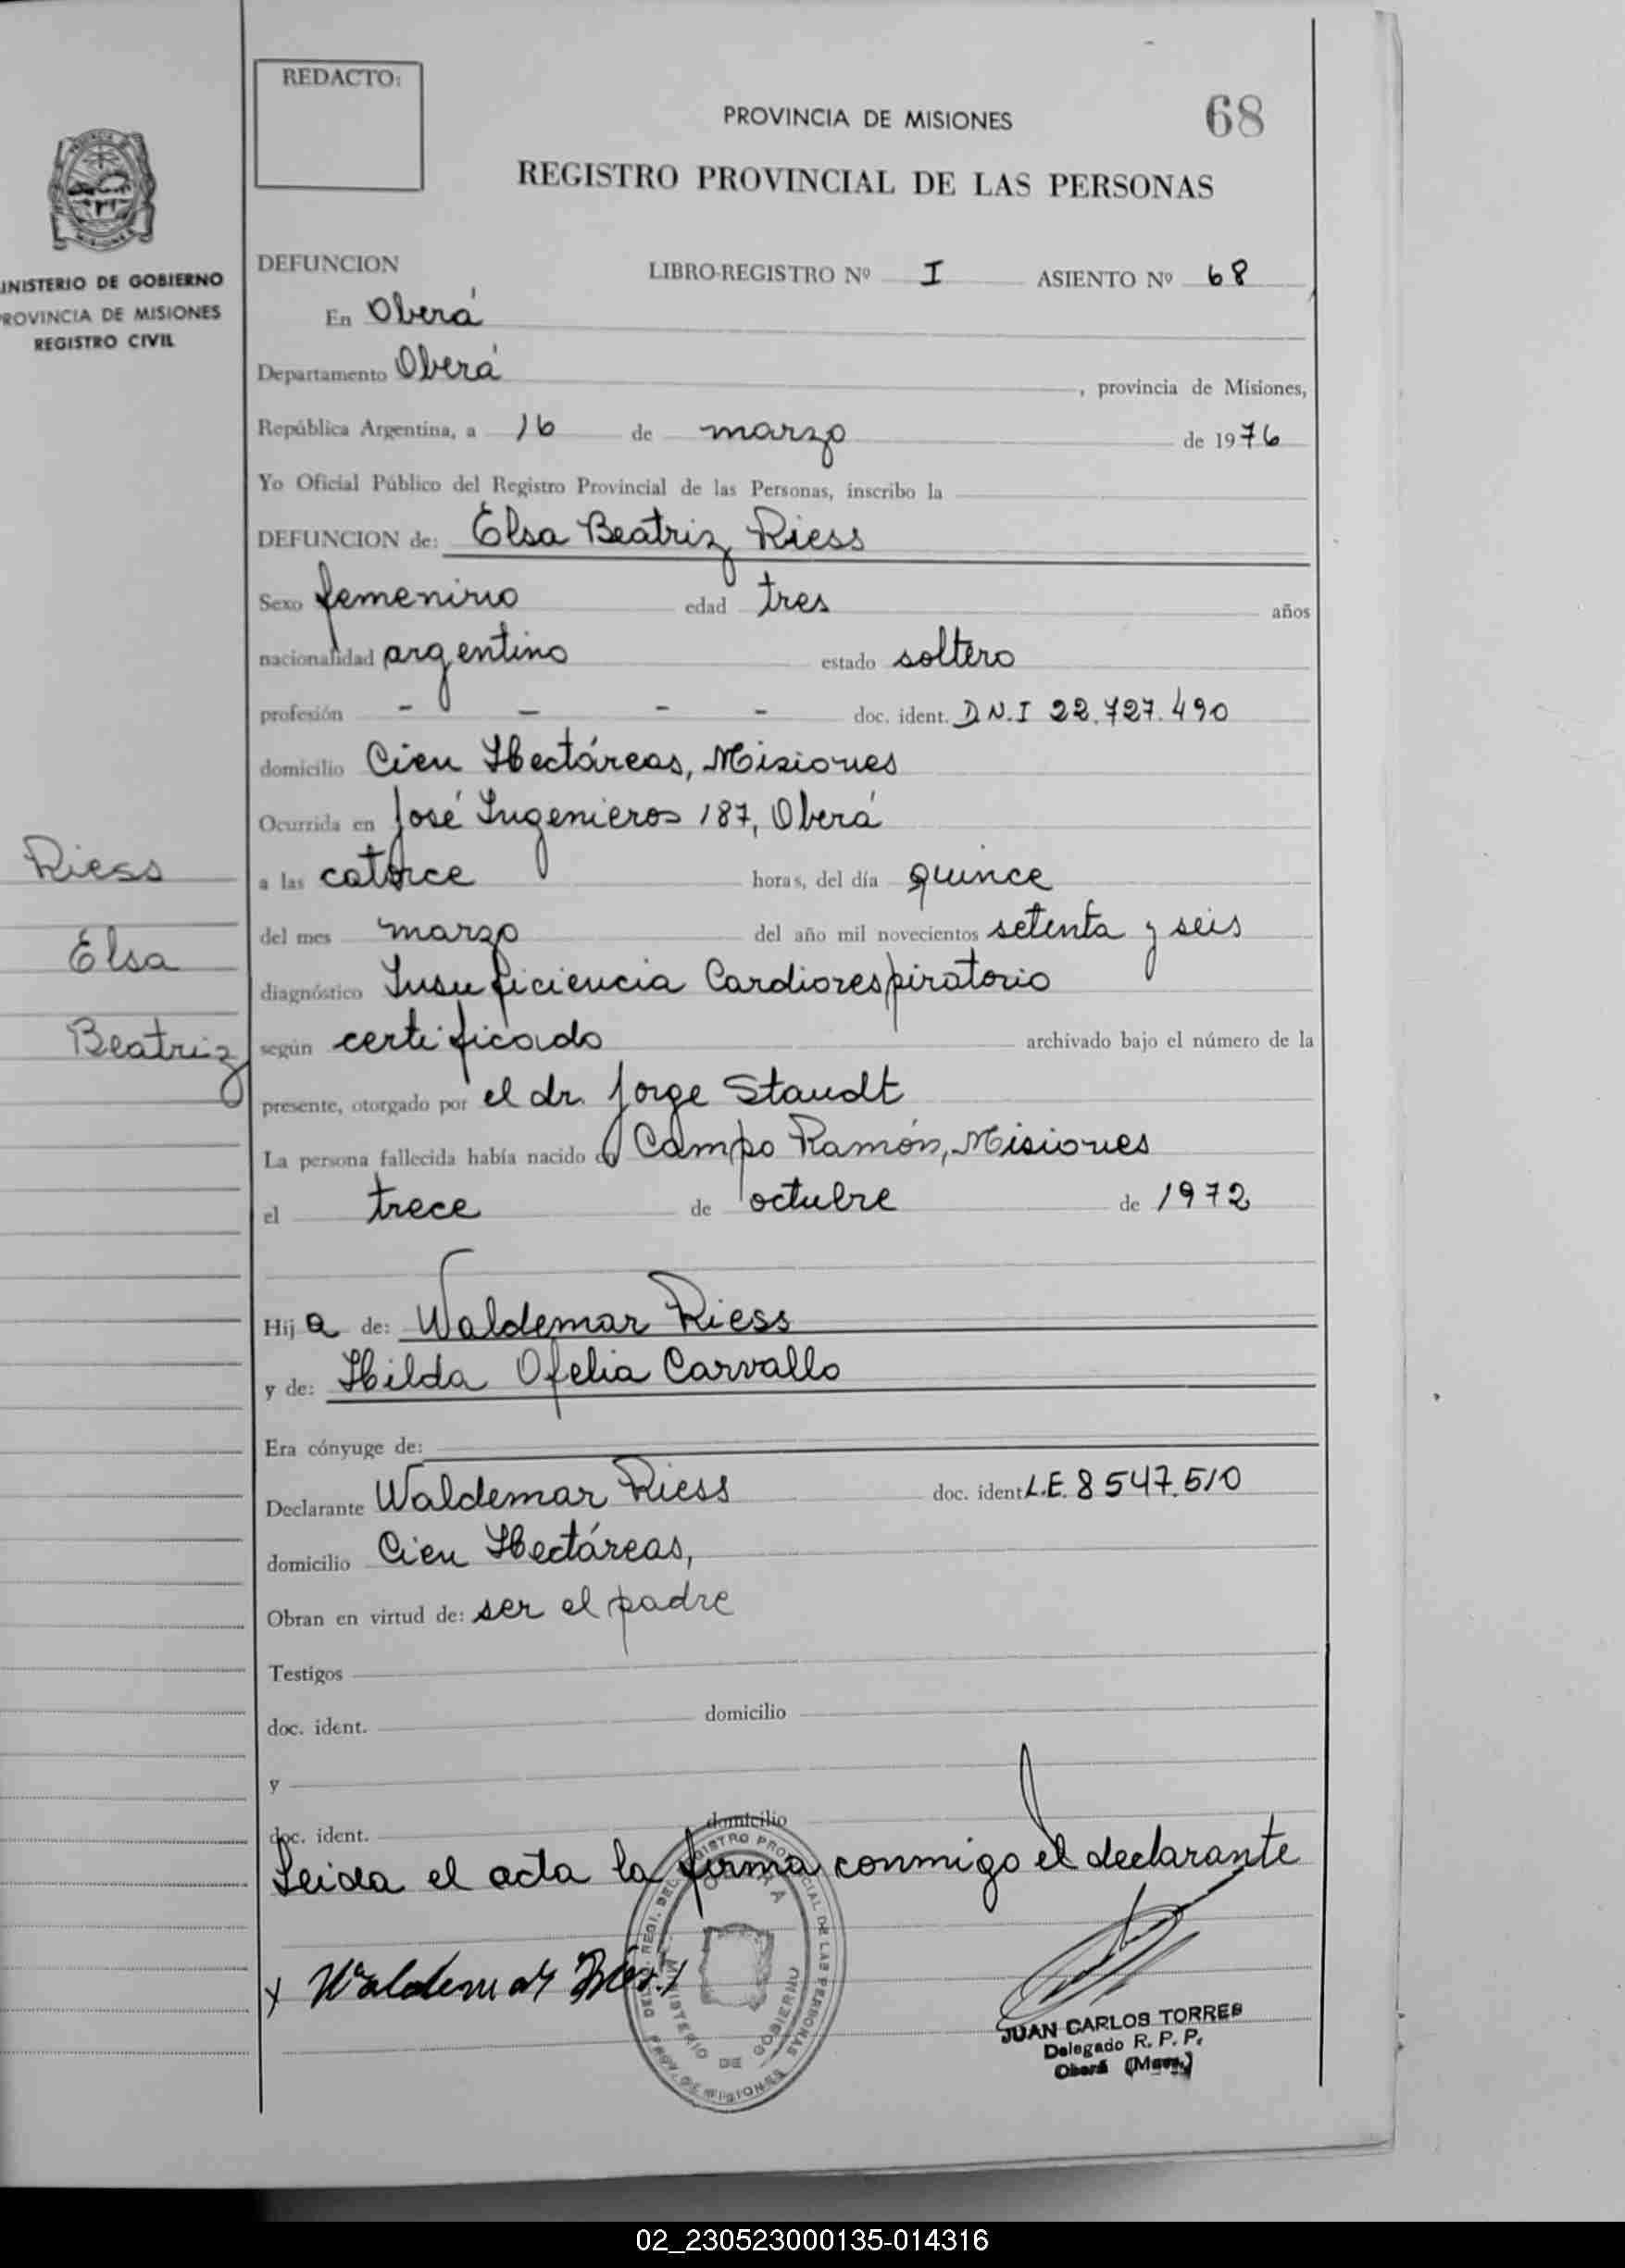 REDACTO:
PROVINCIA DE MISIONES
68
REGISTRO PROVINCIAL DE LAS PERSONAS
INISTERIO DE GOBIERNO
ROVINCIA DE MISIONES
REGISTRO CIVIL
DEFUNCION LIBRO-REGISTRO Nº I ASIENTO Nº 68
En Oberá
Departamento Oberá, provincia de Misiones,
República Argentina, a 16 de marzo de 1976
Yo Oficial Público del Registro Provincial de las Personas, inscribo la
DEFUNCION de: Elsa Beatriz Riess
Sexo femenino edad tres años
nacionalidad argentino estado soltero
profesión - - - - doc. ident. D.N.I 22.727.490
domicilio Cien Hectáreas, Misiones
Ocurrida en José Ingenieros 187, Oberá
Riess
a las catorce horas, del día quince
Elsa
del mes marzo del año mil novecientos setenta y seis
diagnóstico Insuficiencia Cardiorespiratorio
Beatriz
según certificado archivado bajo el número de la
presente, otorgado por el dr. Jorge Staudt
La persona fallecida había nacido en Campo Ramón, Misiones
el trece de octubre de 1972
Hija de: Waldemar Riess
y de: Hilda Ofelia Carvallo
Era cónyuge de:
Declarante Waldemar Riess doc. ident L.E. 8 547.510
domicilio Cien Hectáreas,
Obran en virtud de: ser el padre
Testigos
doc. ident. domicilio
y
doc. ident. domicilio
Leida el acta la firma conmigo el declarante
x Waldemar Riess
JUAN CARLOS TORRES
Delegado R. P. P.
Oberá (Mnes.)
MINISTERIO DE GOBIERNO
02_230523000135-014316